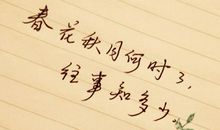 春花秋月何时了,
往事知多少.